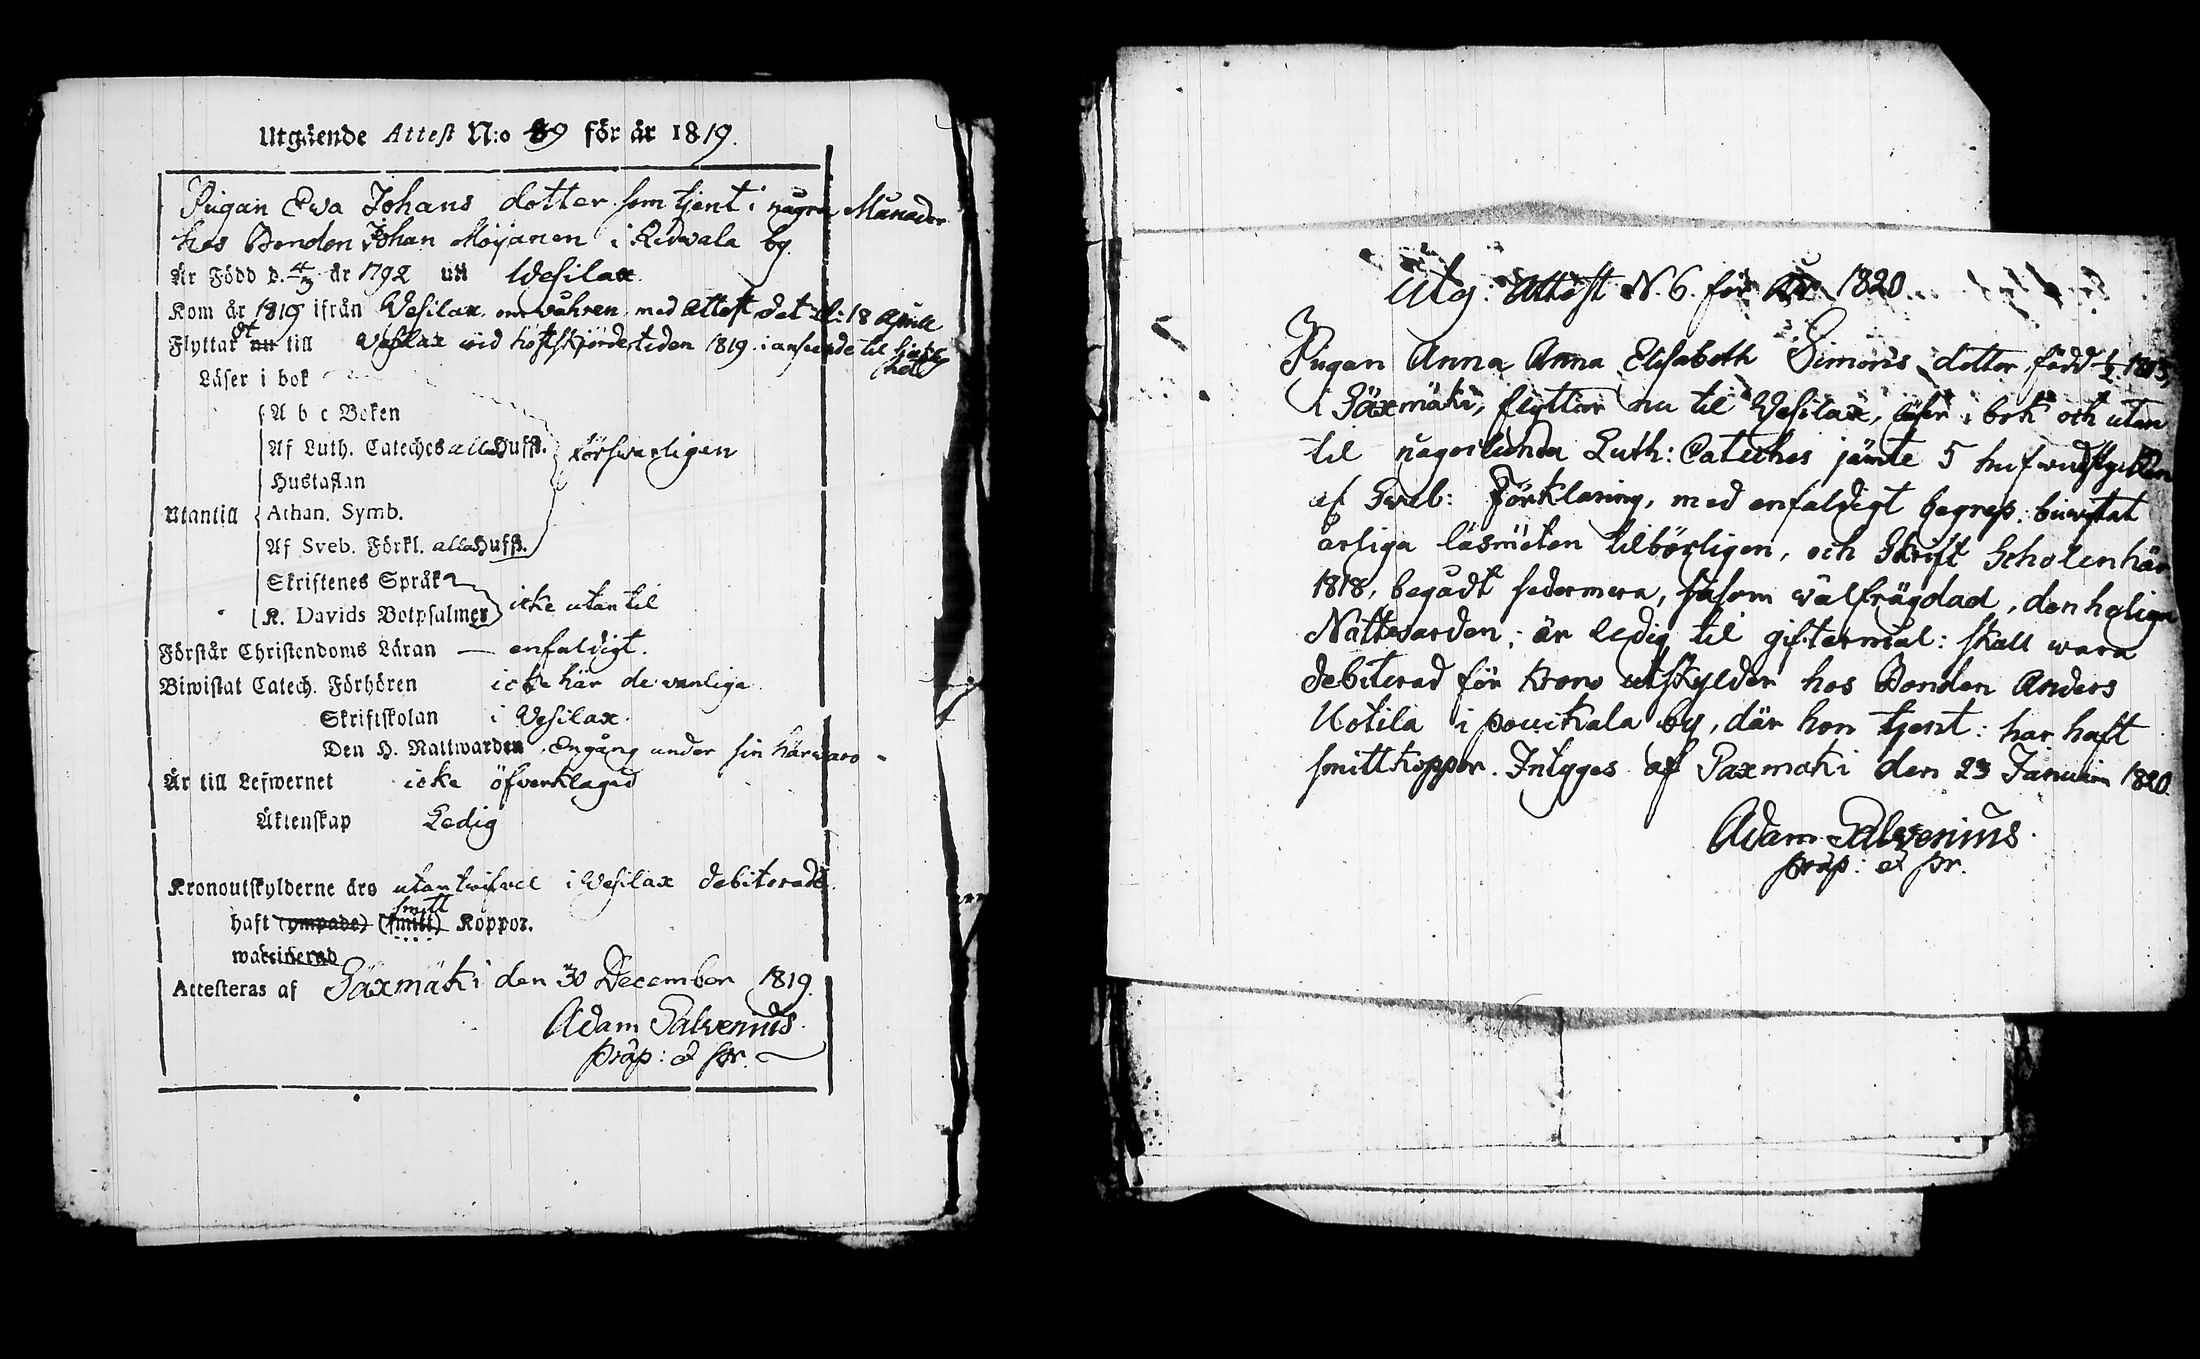 Utgående Attest N:o 89 för år 1819.
Pigan Ewa Johans dotter som tjent i några Månader
hos Bonden Johan Möijänen i Ridvala by.
Är Född d. 4/3 år 1792 uti Wesilax.
Kom år 1819 ifrån Wesilax om wåhren med Attest dat d: 18 Aprill
Flyttar nu till Wesilax wid höstskjördetiden 1819 i anseende til sjuklig
het
Läser i bok
A b c Boken
Af Luth. Cateches alla Huffst. försvarligen
Hustaflan
Utantill Athan. Symb.
Af Sveb. Förkl. alla Huffst.
Skriftenes Språk
K. Davids Botpsalmer icke utantil
Förstår Christendoms Läran — enfaldigt.
Biwistat Catech. Förhören icke här de vanliga
Skriftskolan i Vesilax.
Den H. Nattwarden Engång under sin härwaro
Är till Lefwernet icke öfverklagad
Äktenskap Ledig
Kronoutskylderne äro utantwifvel i Vesilax debiterade.
smitt
haft (ympade) (smitt) Koppor.
waccinerad
Attesteras af Säxmäki den 30 December 1819.
Adam Salvenius.
Präp: & Pr.
Utg: Attest N. 6. för År 1820.
Pigan Anna Anna Elisabeth Simons dotter, född
i Säxmäki, flyttar nu til Wesilax, läser i bok och utan
til någorlunda Luth: Cateches jämte 5 hufwudstycken
af Sveb: Förklaring, med enfaldigt begrep. biwistat
årliga läsmöten tilbörligen, och Skrift Scholen här
1818, begådt sedermera, såsom wälfrägdad, den heliga
Nattwarden; är ledig til giftermål: skall wara
debiterad för Krono utskylder hos Bonden Anders
Uotila i Pouckala by, där hon tjent: har haft
smittkoppor. Intygas af Saxmäki den 23 Januari 1820.
Adam Salvenius.
Präp: & Pr.